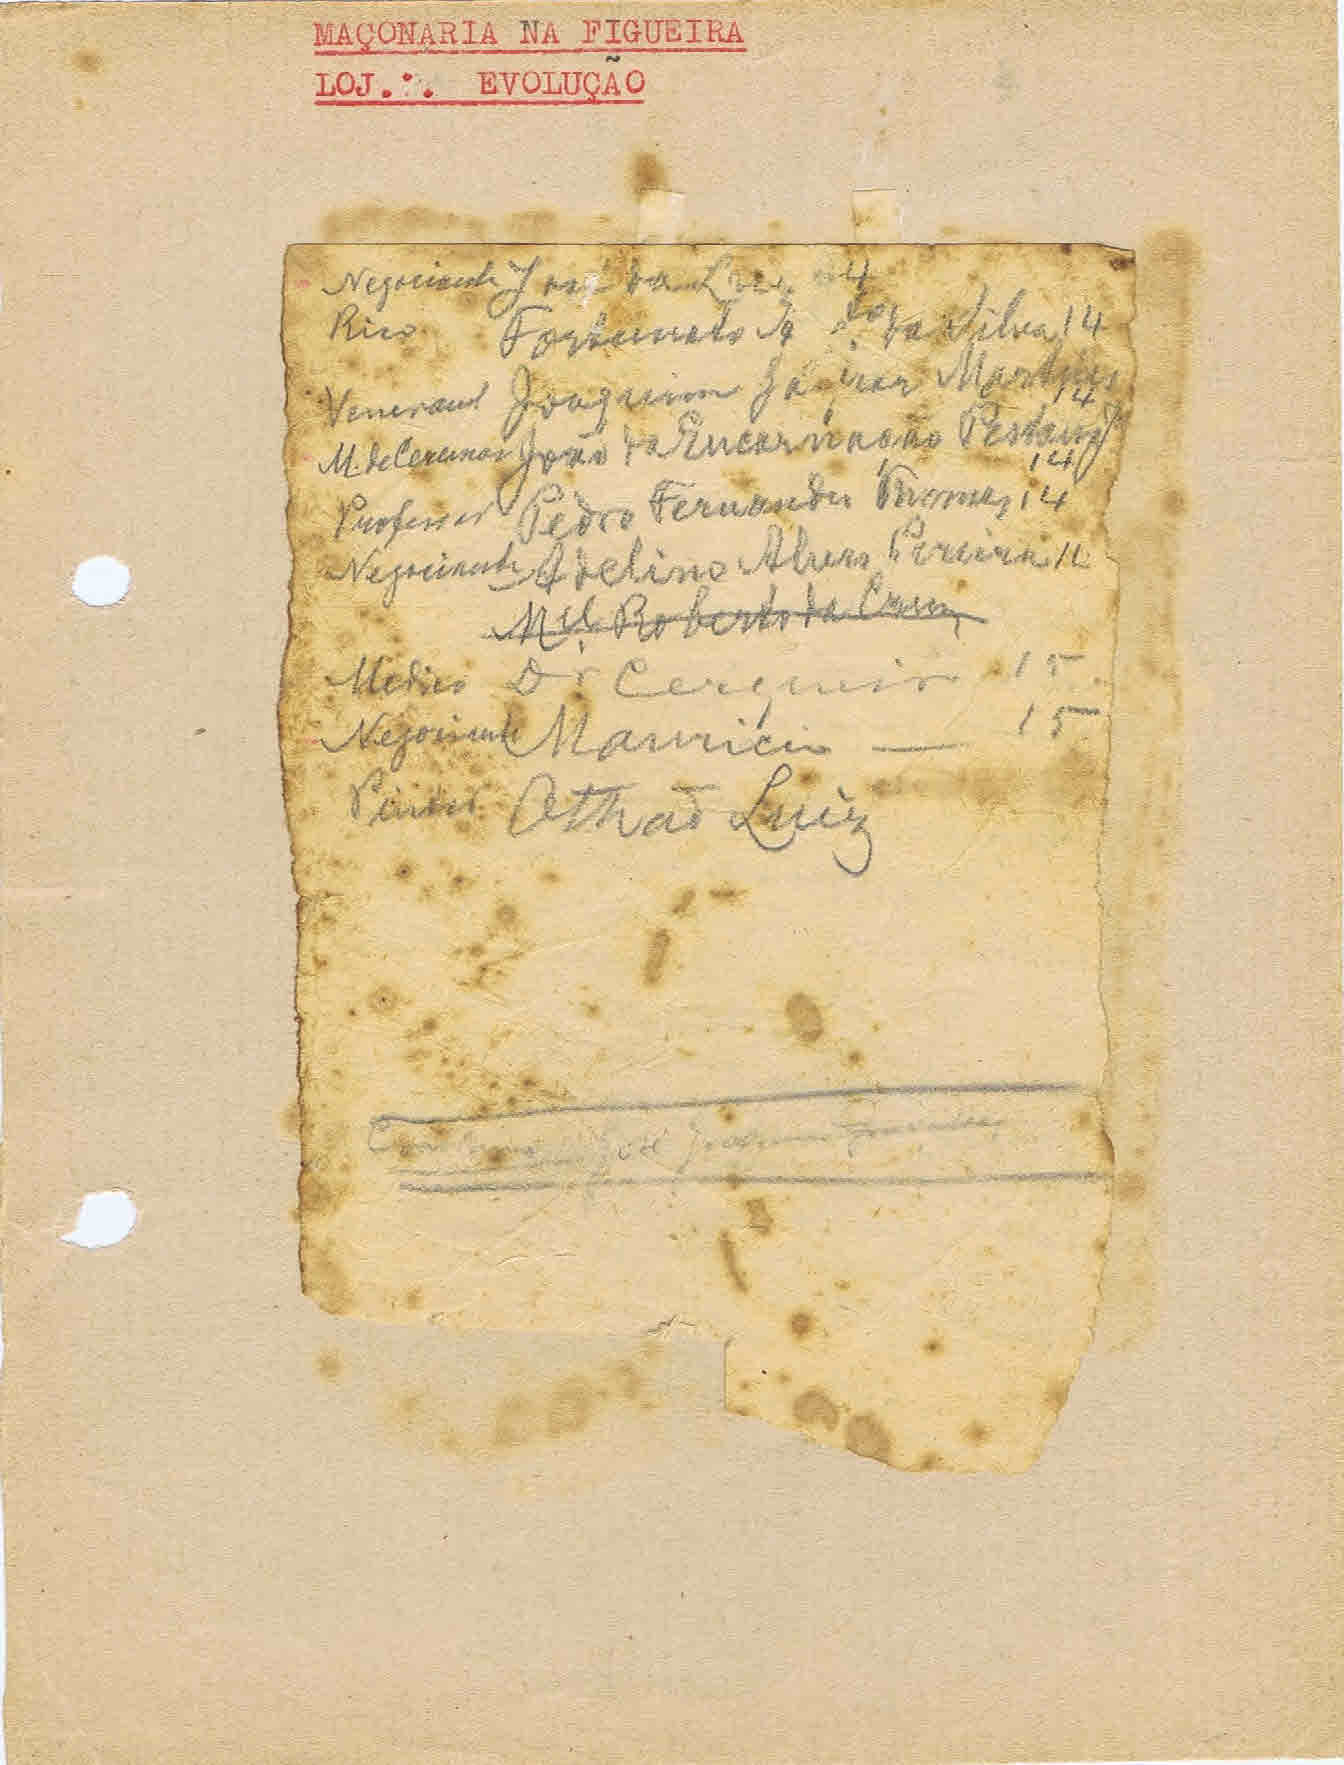 MAÇONARIA NA FIGUEIRA
LOJ.∴ EVOLUÇÃO
Negociante José da 14
Rico Fortunato da Silva 14
Veneravel Joaquim Martins 14
M. de João da Encarnação Pestana 14
Professor Pedro Fernandes Thomaz 14
Negociante Adelino Alves Pereira
Mel. Roberto da Cruz
Medico Dr Cerqueira 15
Negociante Mauricio — 15
Pintor Luiz
José